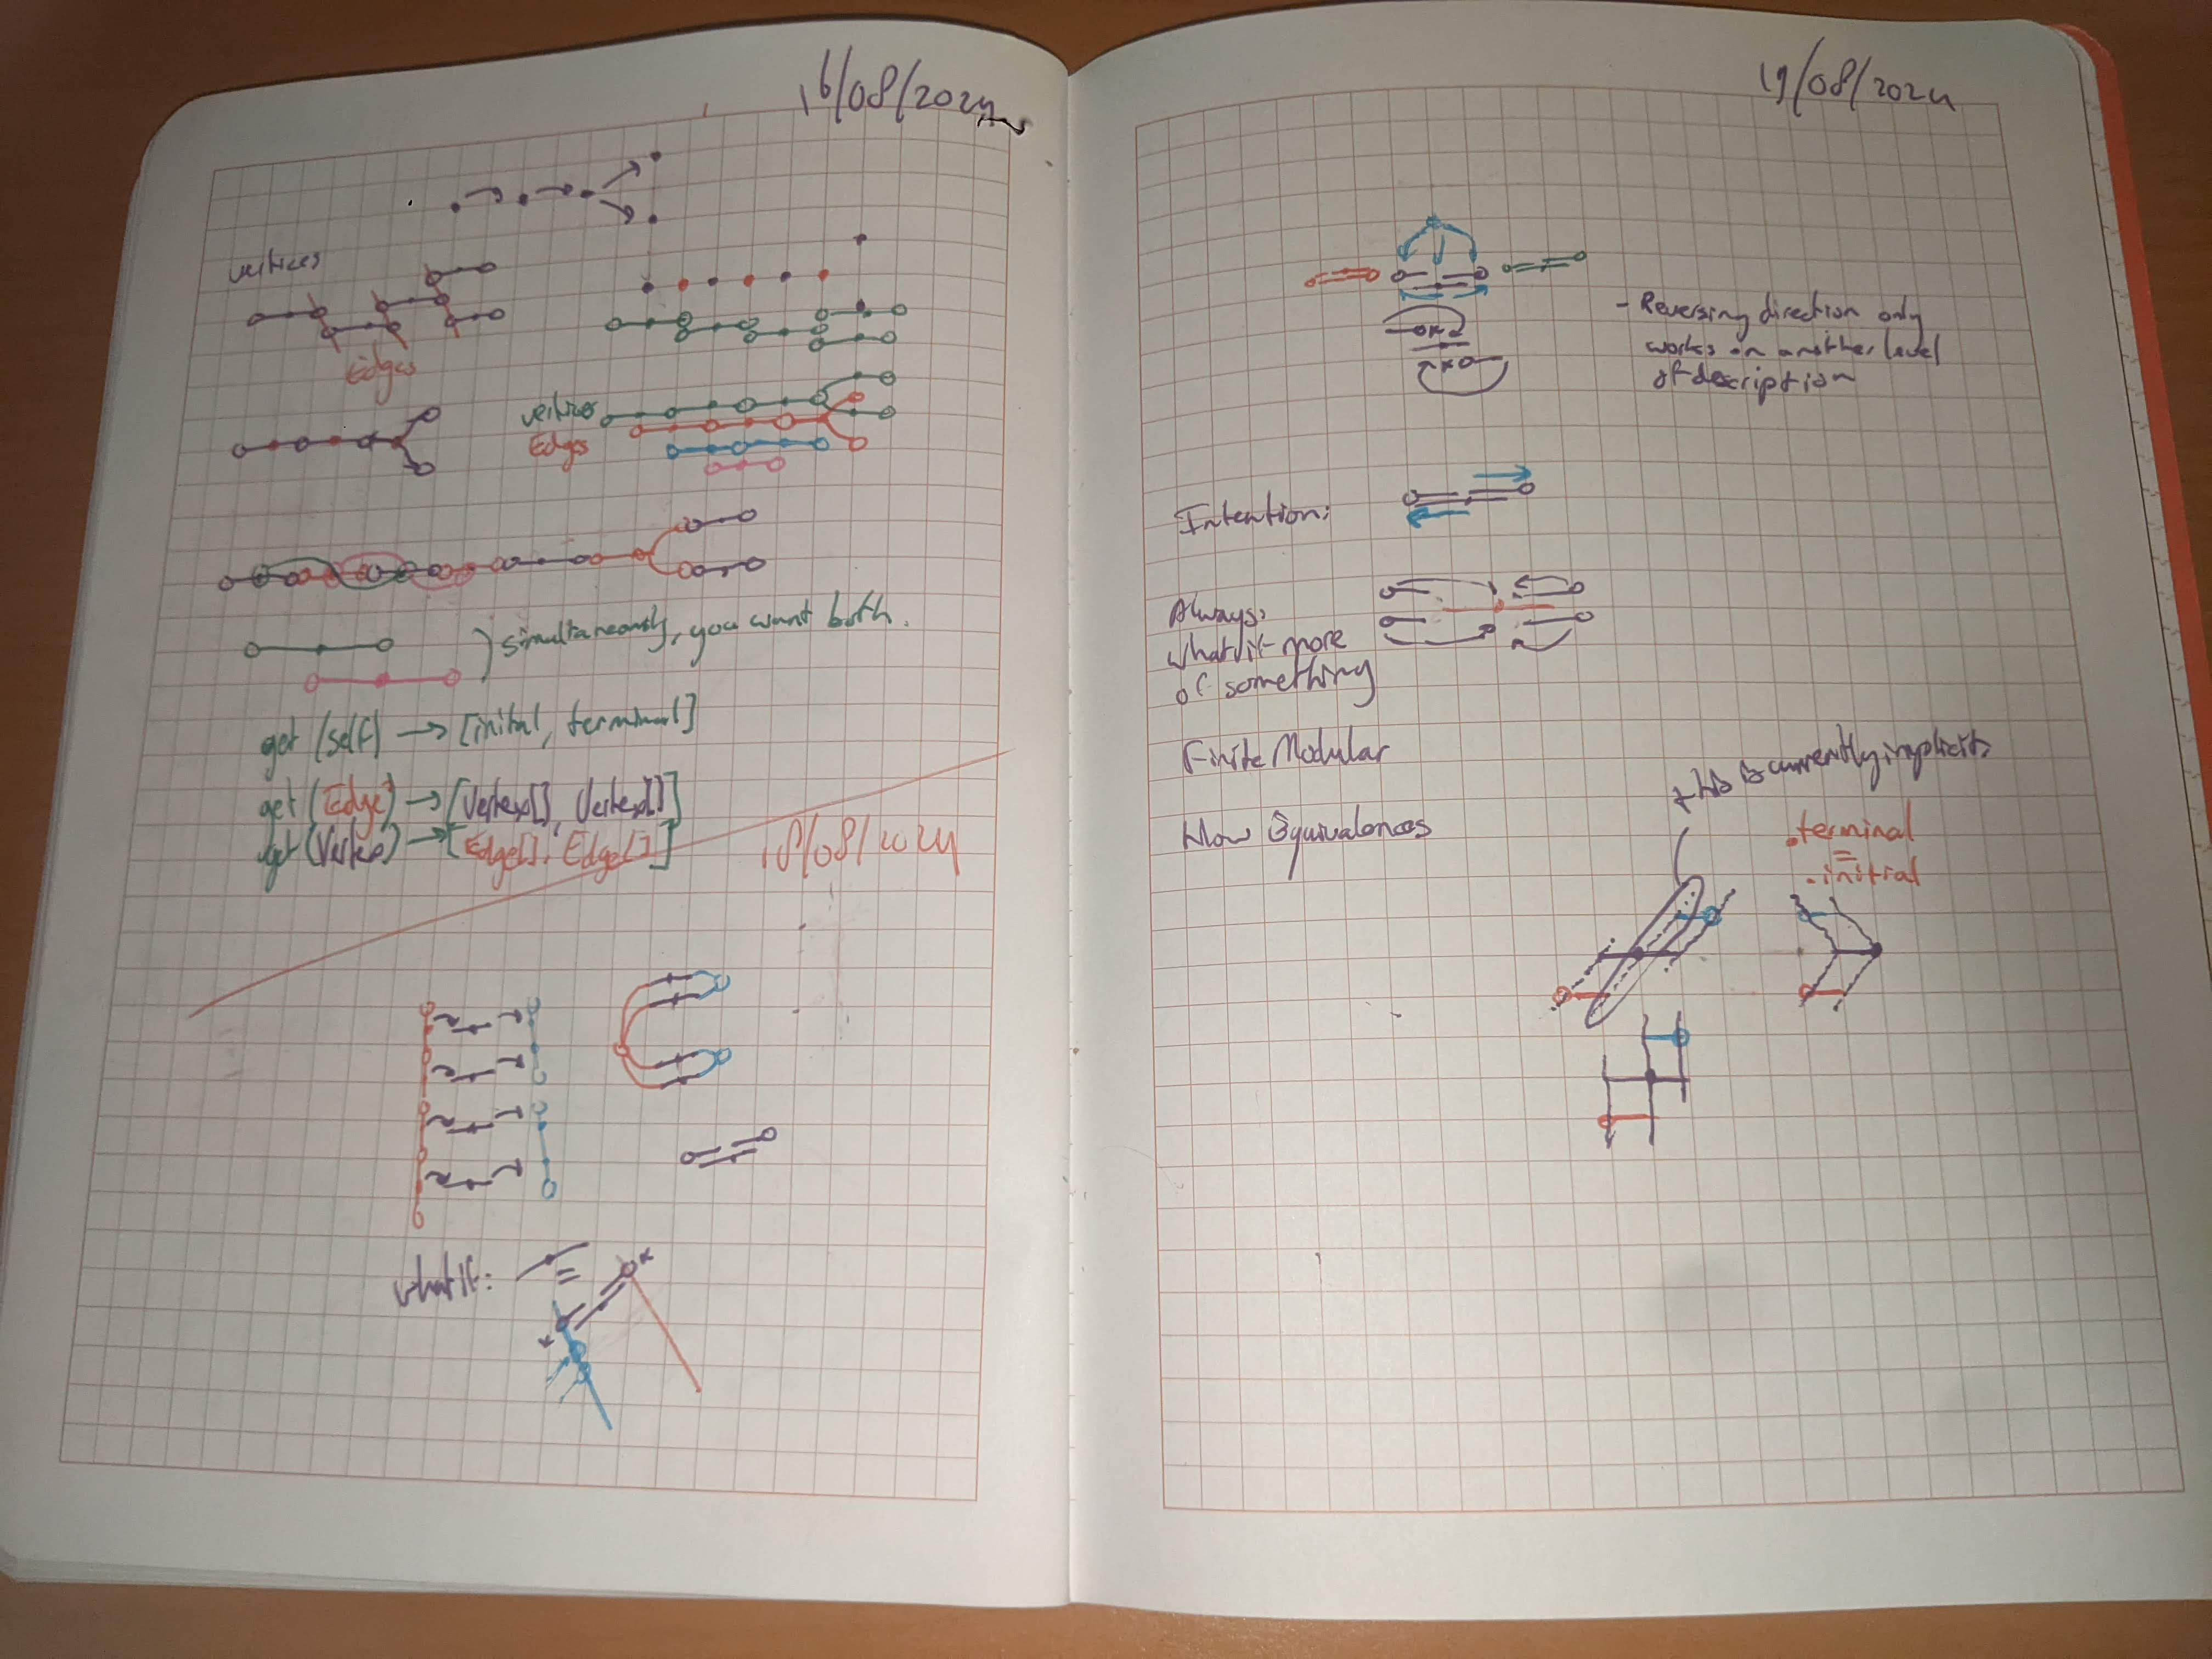 16/08/2024
vertices
Edges
vertices
Edges
simultaneously, you want both.
get (self) → [inital, terminal]
get (Edge) → [Vertex[], Vertex[]]
get (Vertex) → [Edge[], Edge[]]
18/08/2024
what if:
=
19/08/2024
- Reversing direction only
works on another level
of description
Intention:
Always:
what if more
of something
Finite Modular
How Equivalences
this is currently implicit
.terminal
=
.initial